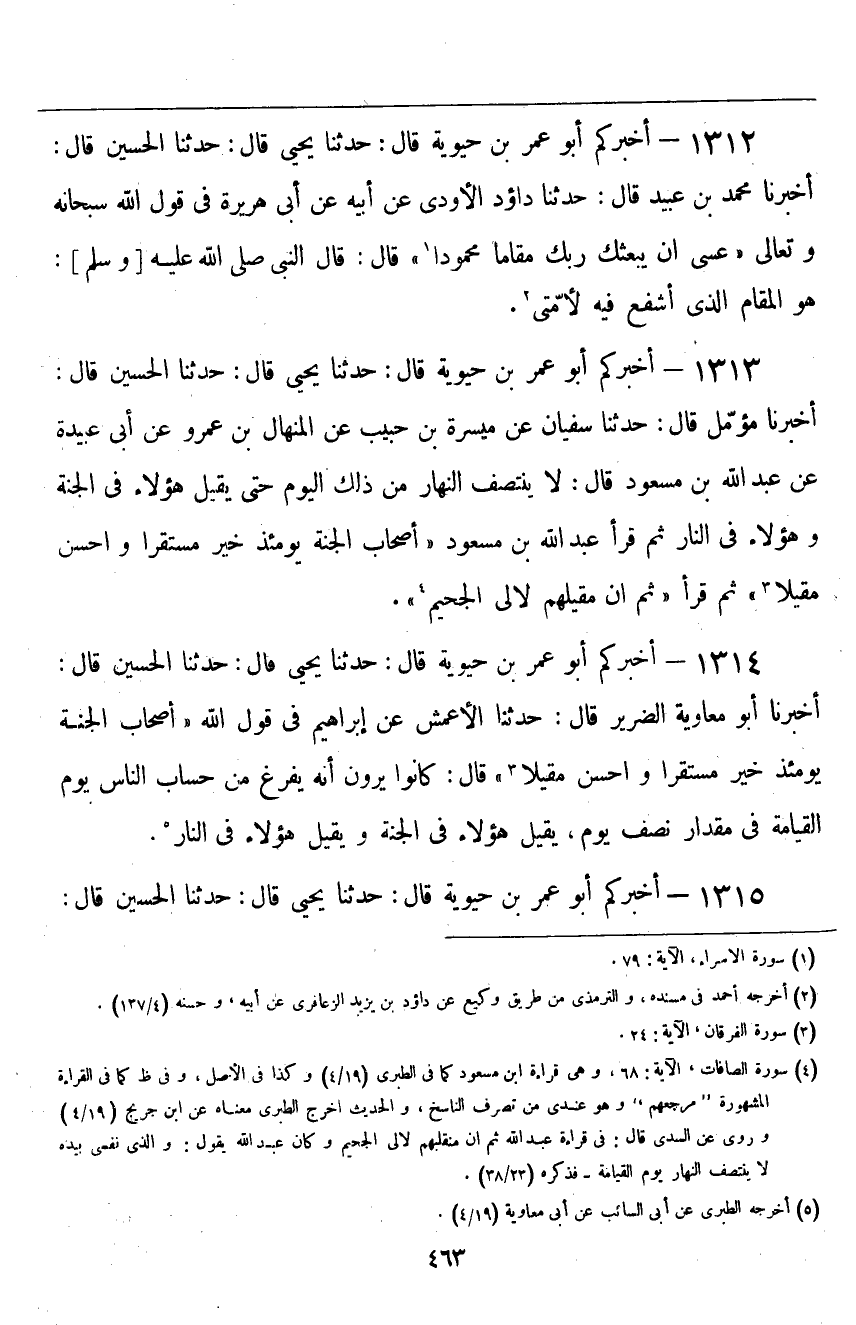 ١٣١٢ – أخبركم أبو عمر بن حيوية قال : حدثنا يحيى قال : حدثنا الحسين قال :
أخبرنا محمد بن عبيد قال : حدثنا داؤد الأودى عن أبيه عن أبى هريرة فى قول الله سبحانه
و تعالى « عسى ان يبعثك ربك مقاما محمودا١ » قال : قال النبى صلى الله عليه [ و سلم ] :
هو المقام الذى أشفع فيه لأمّتى٢ .
١٣١٣ – أخبركم أبو عمر بن حيوية قال : حدثنا يحيى قال : حدثنا الحسين قال :
أخبرنا مؤمّل قال : حدثنا سفيان عن ميسرة بن حبيب عن المنهال بن عمرو عن أبى عبيدة
عن عبد الله بن مسعود قال : لا ينتصف النهار من ذلك اليوم حتى يقيل هؤلاء فى الجنة
و هؤلاء فى النار ثم قرأ عبد الله بن مسعود « أصحاب الجنة يومئذ خير مستقرا و احسن
مقيلا٣ » ثم قرأ « ثم ان مقيلهم لالى الجحيم٤ » .
١٣١٤ – أخبركم أبو عمر بن حيوية قال : حدثنا يحيى قال : حدثنا الحسين قال :
أخبرنا أبو معاوية الضرير قال : حدثنا الأعمش عن إبراهيم فى قول الله « أصحاب الجنة
يومئذ خير مستقرا و احسن مقيلا٣ » قال : كانوا يرون أنه يفرغ من حساب الناس يوم
القيامة فى مقدار نصف يوم ، يقيل هؤلاء فى الجنة و يقيل هؤلاء فى النار٥ .
١٣١٥ – أخبركم أبو عمر بن حيوية قال : حدثنا يحيى قال : حدثنا الحسين قال :
(١) سورة الاسراء ، الآية : ٧٩ .
(٢) أخرجه أحمد فى مسنده ، و الترمذى من طريق وكيع عن داؤد بن يزيد الزعافرى عن أبيه ، و حسنه (١٣٧/٤) .
(٣) سورة الفرقان ، الآية : ٢٤ .
(٤) سورة الصافات ، الآية : ٦٨ ، و هى قراءة ابن مسعود كما فى الطبرى (٤/١٩) و كذا فى الأصل ، و فى ظ كما فى القراءة
المشهورة " مرجعهم " و هو عندى من تصرف الناسخ ، و الحديث اخرج الطبرى معناه عن ابن جريج (٤/١٩)
و روى عن السدى قال : فى قراءة عبد الله ثم ان منقلبهم لالى الجحيم و كان عبد الله يقول : و الذى نفسى بيده
لا ينتصف النهار يوم القيامة – فذكره (٣٨/٢٣) .
(٥) أخرجه الطبرى عن أبى السائب عن أبى معاوية (٤/١٩) .
٤٦٣